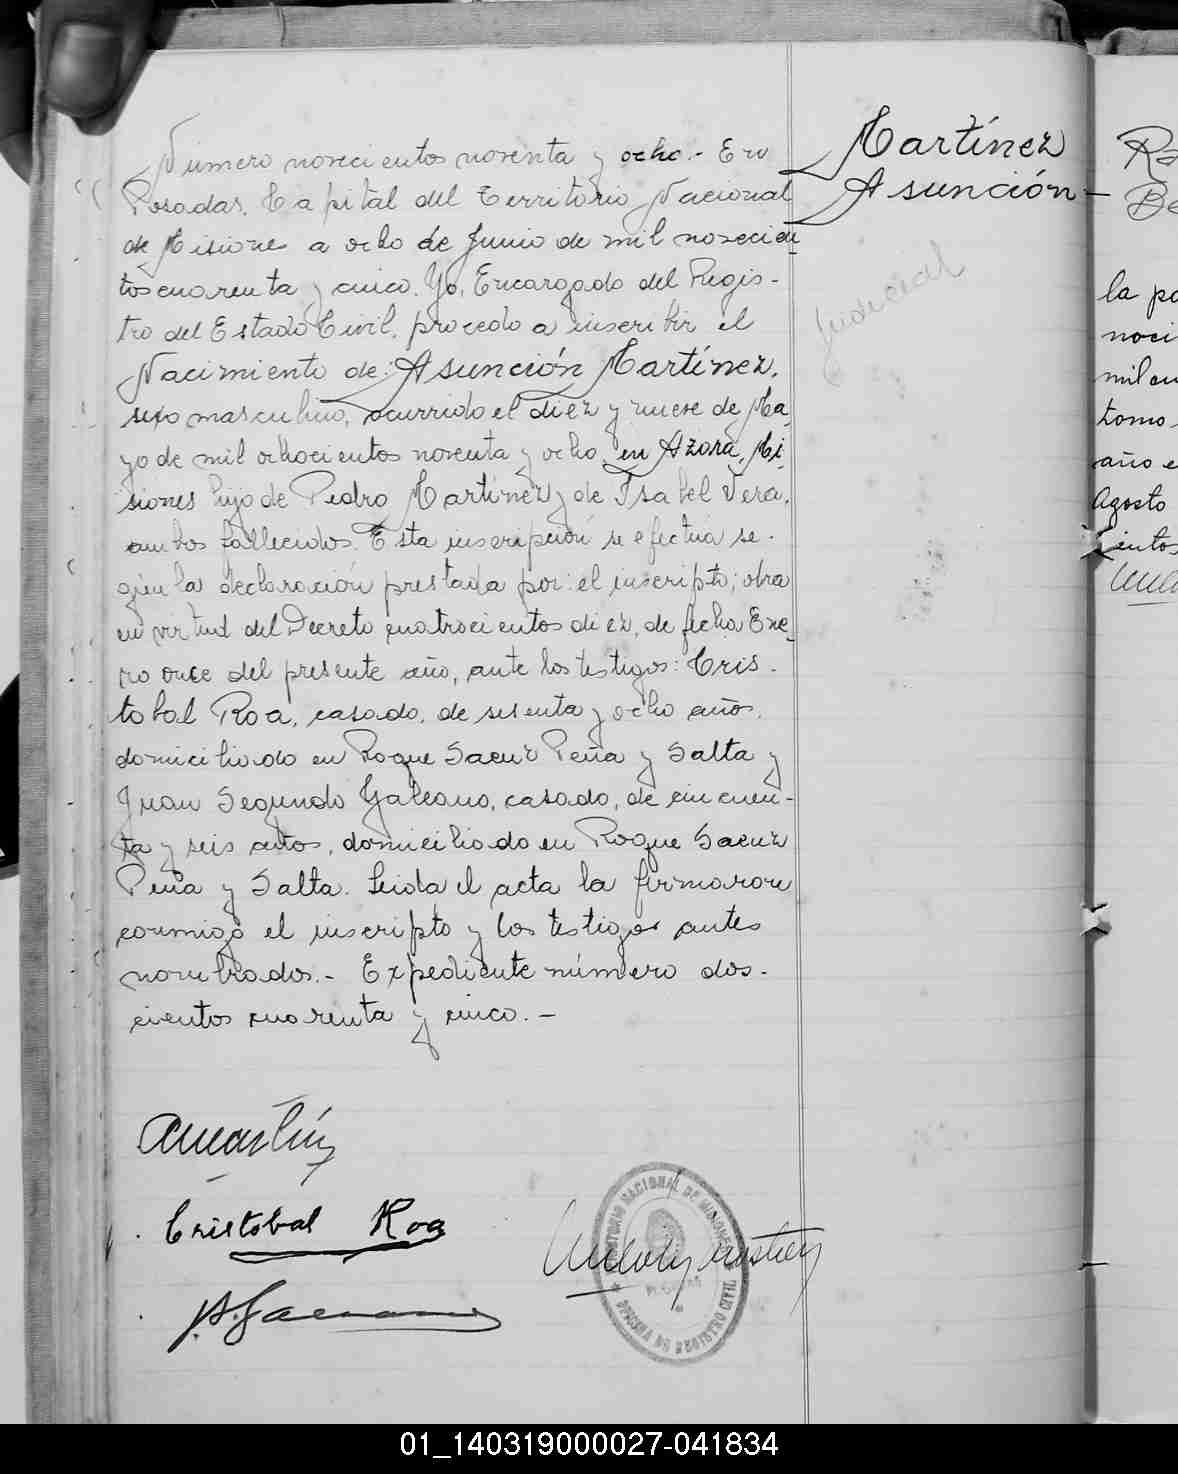 Número novecientos noventa y ocho.- En
Posadas, Capital del Territorio Nacional
de Misiones a ocho de Junio de mil novecien
tos cuarenta y cinco. Yo, Encargado del Regis-
tro del Estado Civil, procedo a inscribir el
Nacimiento de: Asunción Martínez,
sexo masculino, ocurrido el diez y nueve de Ma
yo de mil ochocientos noventa y ocho, en Azara, Mi
siones hijo de Pedro Martínez y de Isabel Vera,
ambos fallecidos. Esta inscripción se efectúa se-
gún la declaración prestada por: el inscripto; obra
en virtud del Decreto cuatrocientos diez, de fecha Ene
ro once del presente año, ante los testigos: Cris-
tobal Roa, casado, de sesenta y ocho años,
domiciliado en Roque Saenz Peña y Salta y
Juan Segundo Galeano, casado, de cincuen-
ta y seis años, domiciliado en Roque Saenz
Peña y Salta. Leida el acta la firmaron
conmigo el inscripto y los testigos antes
nombrados.- Expediente número dos-
cientos cuarenta y cinco.-
Martínez
Asunción-
Judicial
AMartínz
Cristobal Roa
J.S.Galeano
TERRITORIO NACIONAL DE MISIONES
OFICINA DE REGISTRO CIVIL
Ra
Be
la pa
noci
mil cu
tomo
año e
Agosto
cientos
01_140319000027-041834